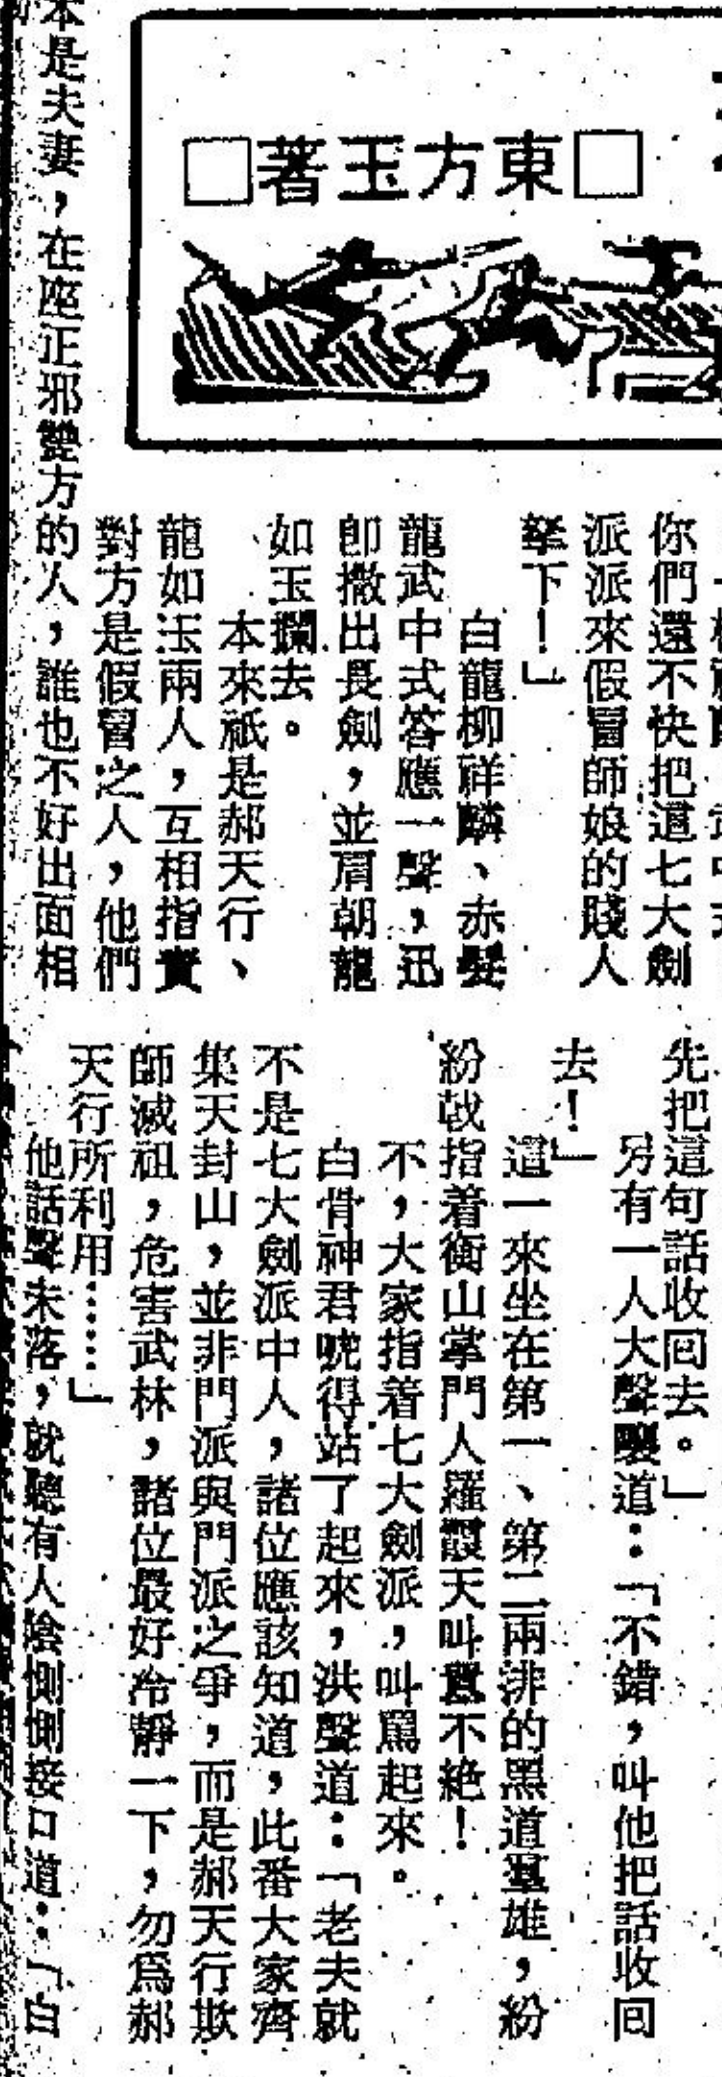 □東方玉著□
你們還不快把這七大劍
派派來假冒師娘的賤人
拏下！」
白龍柳祥麟、赤髮
龍武中式答應一聲，迅
卽撒出長劍，並肩朝龍
如玉攔去。
本來祇是郝天行、
龍如玉兩人，互相指責
對方是假冒之人，他們
本是夫妻，在座正邪雙方的人，誰也不好出面相
先把這句話收回去。」
另有一人大聲嚷道：「不錯，叫他把話收回
去！」
這一來坐在第一、第二兩排的黑道羣雄，紛
紛戟指着衡山掌門人羅霞天叫囂不絶！
不，大家指着七大劍派，叫罵起來。
白骨神君虎得站了起來，洪聲道：「老夫就
不是七大劍派中人，諸位應該知道，此番大家齊
集天封山，並非門派與門派之爭，而是郝天行欺
師滅祖，危害武林，諸位最好冷靜一下，勿爲郝
天行所利用……」
他話聲未落，就聽有人陰惻惻接口道：「白